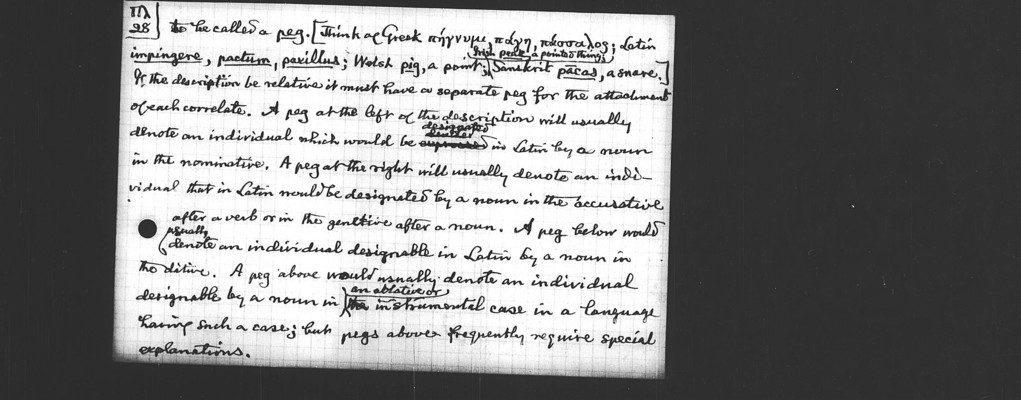 ΠΛ
28
to be called a peg. [Think of Greek πήγνυμι, πάγη, πάσσαλος; Latin
Irish peak, a pointed thing;
impingere, pactum, paxillus; Welsh pig, a point; Sanskrit pācas, a snare.]
If the description be relative it must have a separate peg for the attachment
of each correlate. A peg at the left of the description will usually
designated
denote an individual which would be expressed in Latin by a noun
in the nominative. A peg at the right will usually denote an indi-
vidual that in Latin would be designated by a noun in the accusative
after a verb or in the genitive after a noun. A peg below would
usually
denote an individual designable in Latin by a noun in
the dative. A peg above would usually denote an individual
an ablative or
designable by a noun in the instrumental case in a language
having such a case; but pegs above frequently require special
explanations.